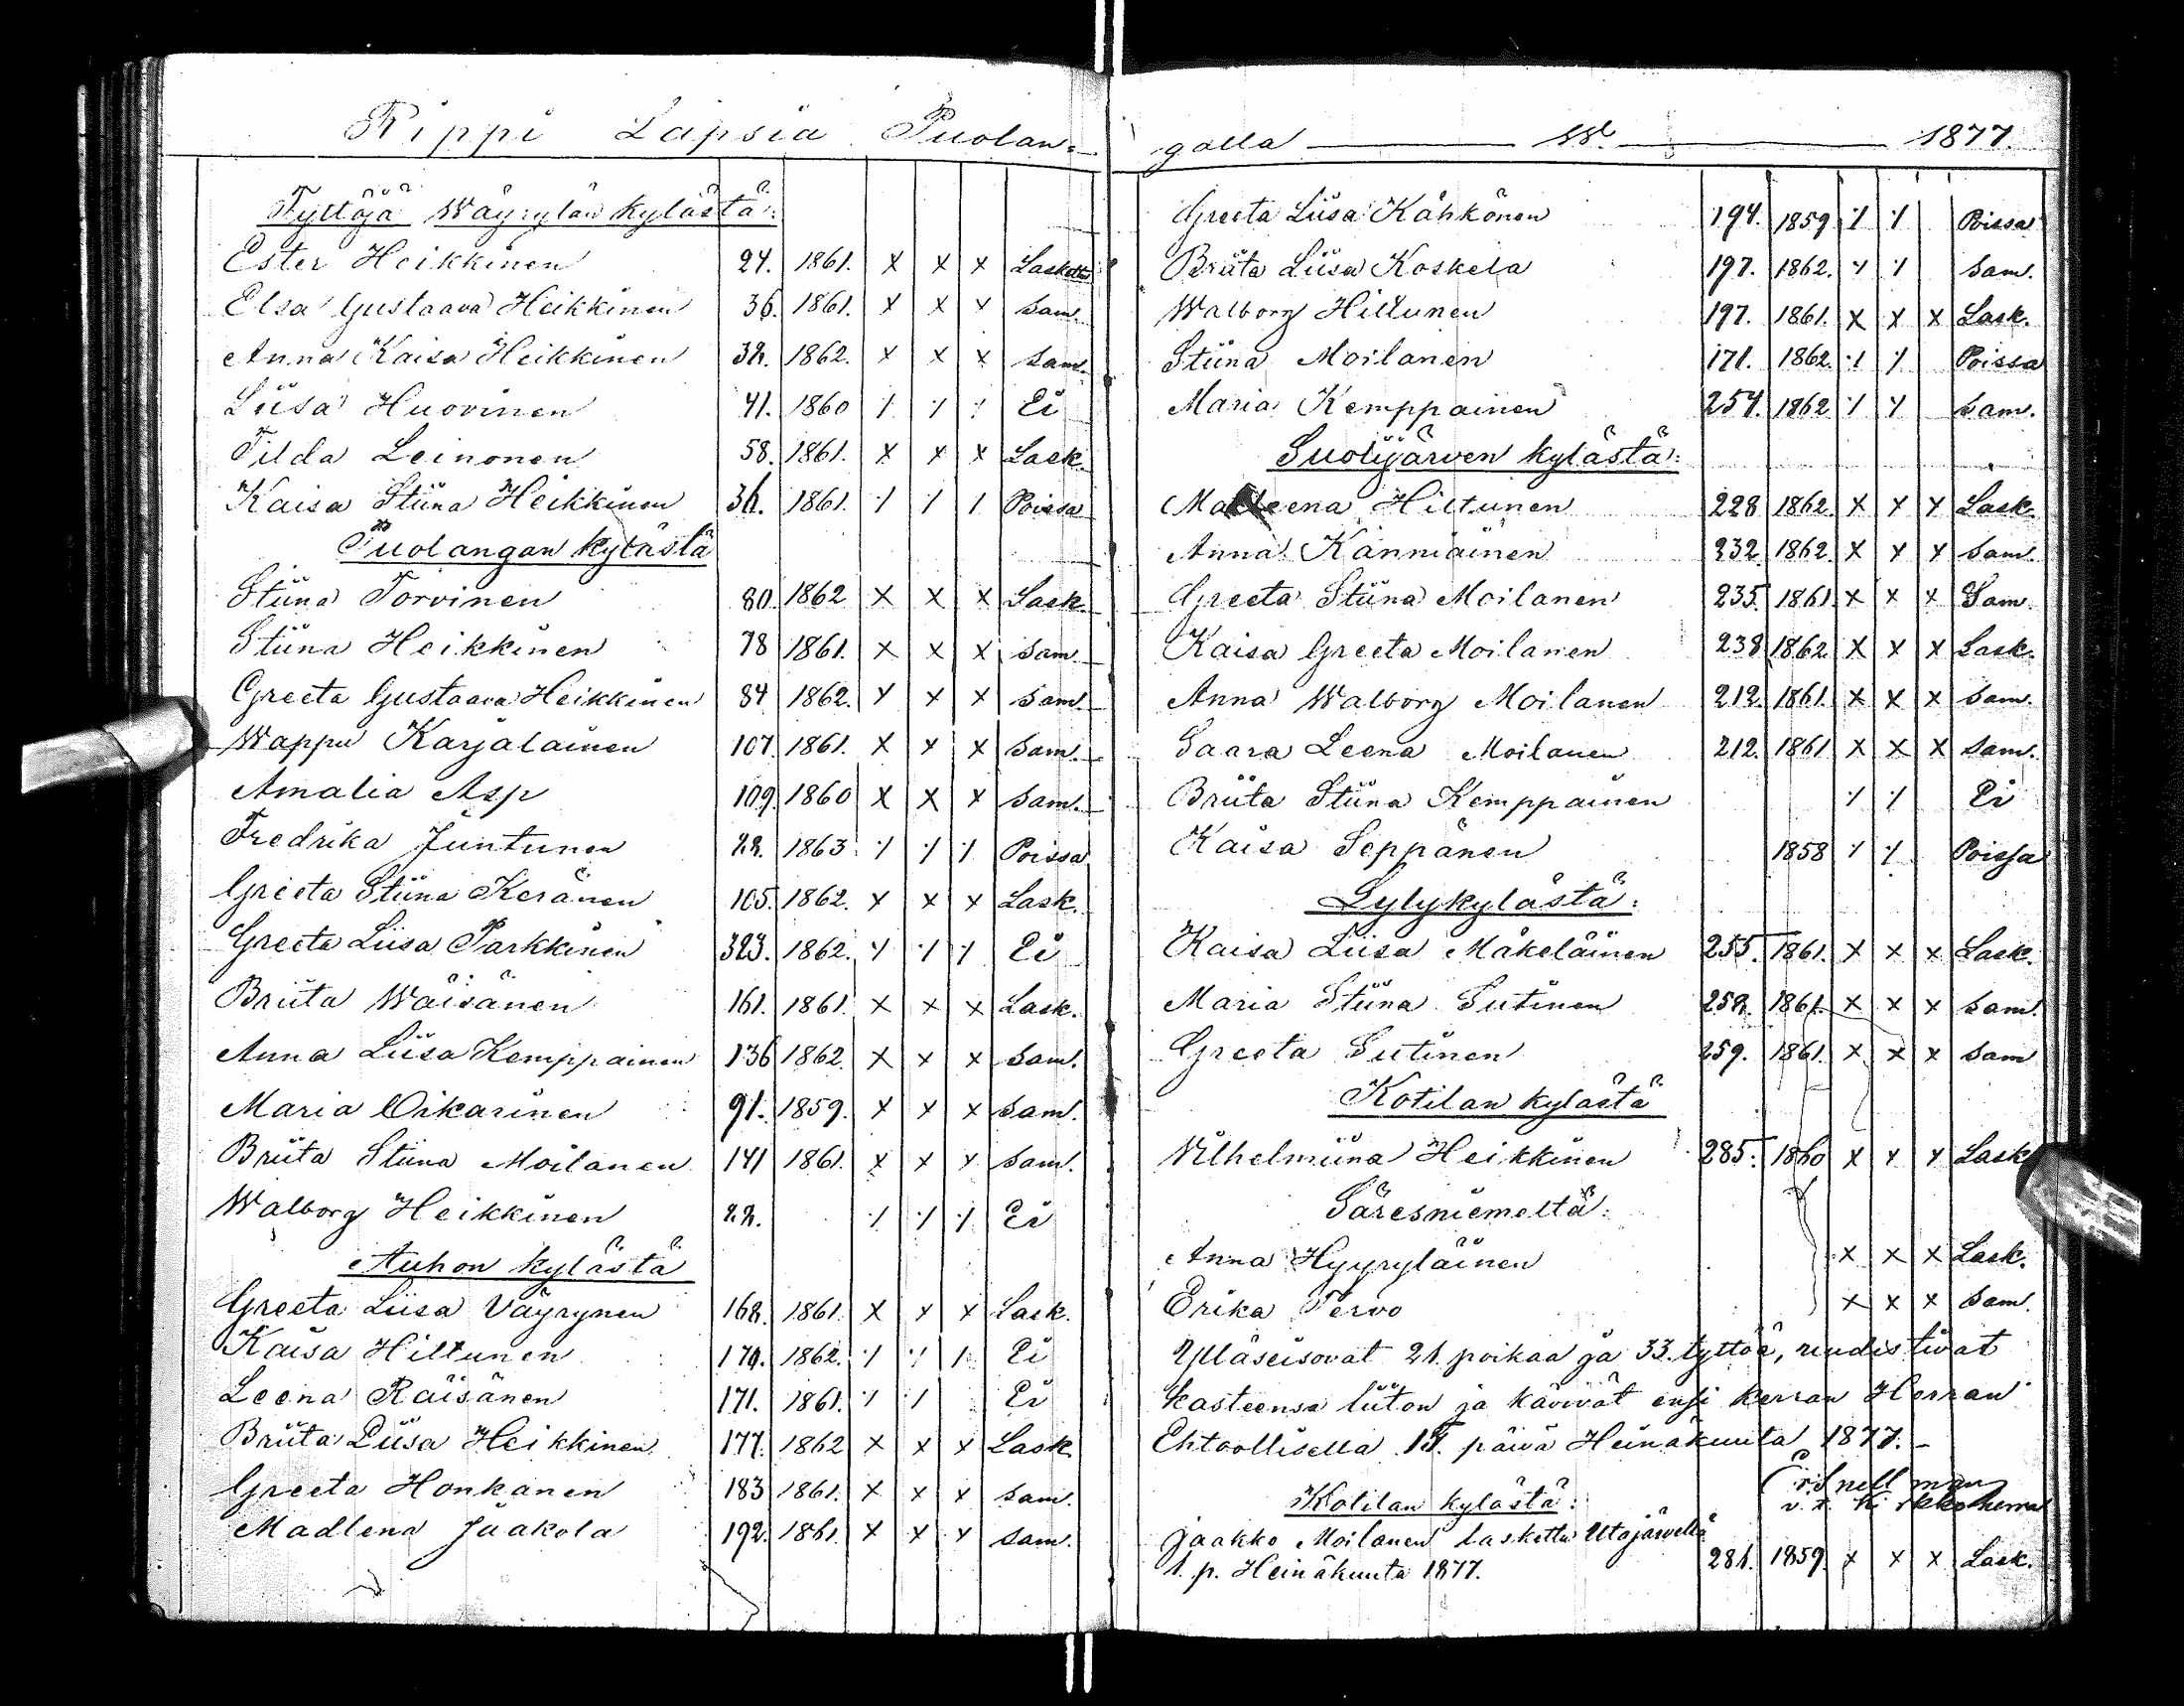 Rippi Lapsia Puolan=
Tyttöjä Wäyrylän kylästä:
Ester Heikkinen 24. 1861. x x x Laskettu
Elsa Gustaava Heikkinen 36. 1861. x x x sam.
Anna Kaisa Heikkinen 32. 1862. x x x sam.
Liisa Huovinen 41. 1860 ⁒ ⁒ ⁒ Ei
Tilda Leinonen 58. 1861. x x x Lask.
Kaisa Stiina Heikkinen 1861. ⁒ ⁒ ⁒ Poissa
Puolangan kylästä
Stiina Torvinen 80. 1862 x x x Lask.
Stiina Heikkinen 78 1861. x x x sam.
Greeta Gustaava Heikkinen 84 1862. x x x sam.
Wappu Karjalainen 107. 1861. x x x sam.
Amalia Asp 109. 1860 x x x sam.
Fredrika Juntunen 22. 1863 ⁒ ⁒ ⁒ Poissa
Greeta Stiina Keränen 105. 1862. x x x Lask.
Greeta Liisa Parkkinen 323. 1862. ⁒ ⁒ ⁒ Ei
Briita Wäisänen 161. 1861. x x x Lask.
Anna Liisa Kemppainen 136 1862. x x x sam.
Maria Oikarinen 91. 1859. x x x sam.
Briita Stiina Moilanen 141 1861. x x x sam.
Walborg Heikkinen 22. ⁒ ⁒ ⁒ Ei
Auhon kylästä
Greeta Liisa Väyrynen 168. 1861. x x x Lask.
Kaisa Hiltunen 170. 1862. ⁒ ⁒ ⁒ Ei
Leena Räisänen 171. 1861. ⁒ ⁒ Ei
Briita Liisa Heikkinen 177. 1862 x x x Lask
Greeta Honkanen 183 1861. x x x sam.
Madlena Jaakola 192. 1861. x x x sam.
galla 1877.
Greeta Liisa Kähkönen 194. 1859 ⁒ ⁒ Poissa
Briita Liisa Koskela 197. 1862. ⁒ ⁒ sam.
Walborg Hiltunen 197. 1861. x x x Lask.
Stiina Moilanen 171. 1862. ⁒ ⁒ Poissa
Maria Kemppainen 254. 1862 ⁒ ⁒ sam.
Suolijärven kylästä:
Madleena Hiltunen 228 1862. x x x Lask.
Anna Känniäinen 232 1862. x x x sam.
Greeta Stiina Moilanen 235. 1861 x x x Sam.
Kaisa Greeta Moilanen 238 1862 x x x Lask.
Anna Walborg Moilanen 212. 1861. x x x sam.
Saara Leena Moilanen 212. 1861 x x x sam.
Briita Stiina Kemppainen ⁒ ⁒ Ei
Kaisa Seppänen 1858 ⁒ ⁒ Poissa
Lylykylästä:
Kaisa Liisa Mäkeläinen 255. 1861. x x x Lask.
Maria Stiina Sutinen 258. 1861. x x x sam.
Greeta Sutinen 259. 1861. x x x sam
Kotilan kylästä
Vilhelmiina Heikkinen 285. 1860 x x x Lask
Säresniemeltä:
Anna Hyyryläinen x x x Lask.
Erika Tervo x x x sam.
Ylläseisovat 21. poikaa ja 33. tyttöä, uudistivat
kasteensa liiton ja kävivät ensi kerran Herran
Ehtoollisella 15. päivä Heinäkuuta 1877.-
Snellman
v. t. Kirkkoherra
Kotilan kylästä:
Jaakko Moilanen laskettu Utajärvellä
1. p. Heinäkuuta 1877. 281. 1859. x x x Lask.